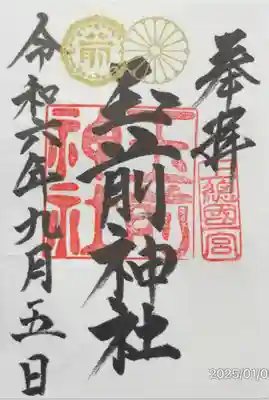 奉拝
玉前神社
令和六年九月五日
玉前
神社
2025/01/0